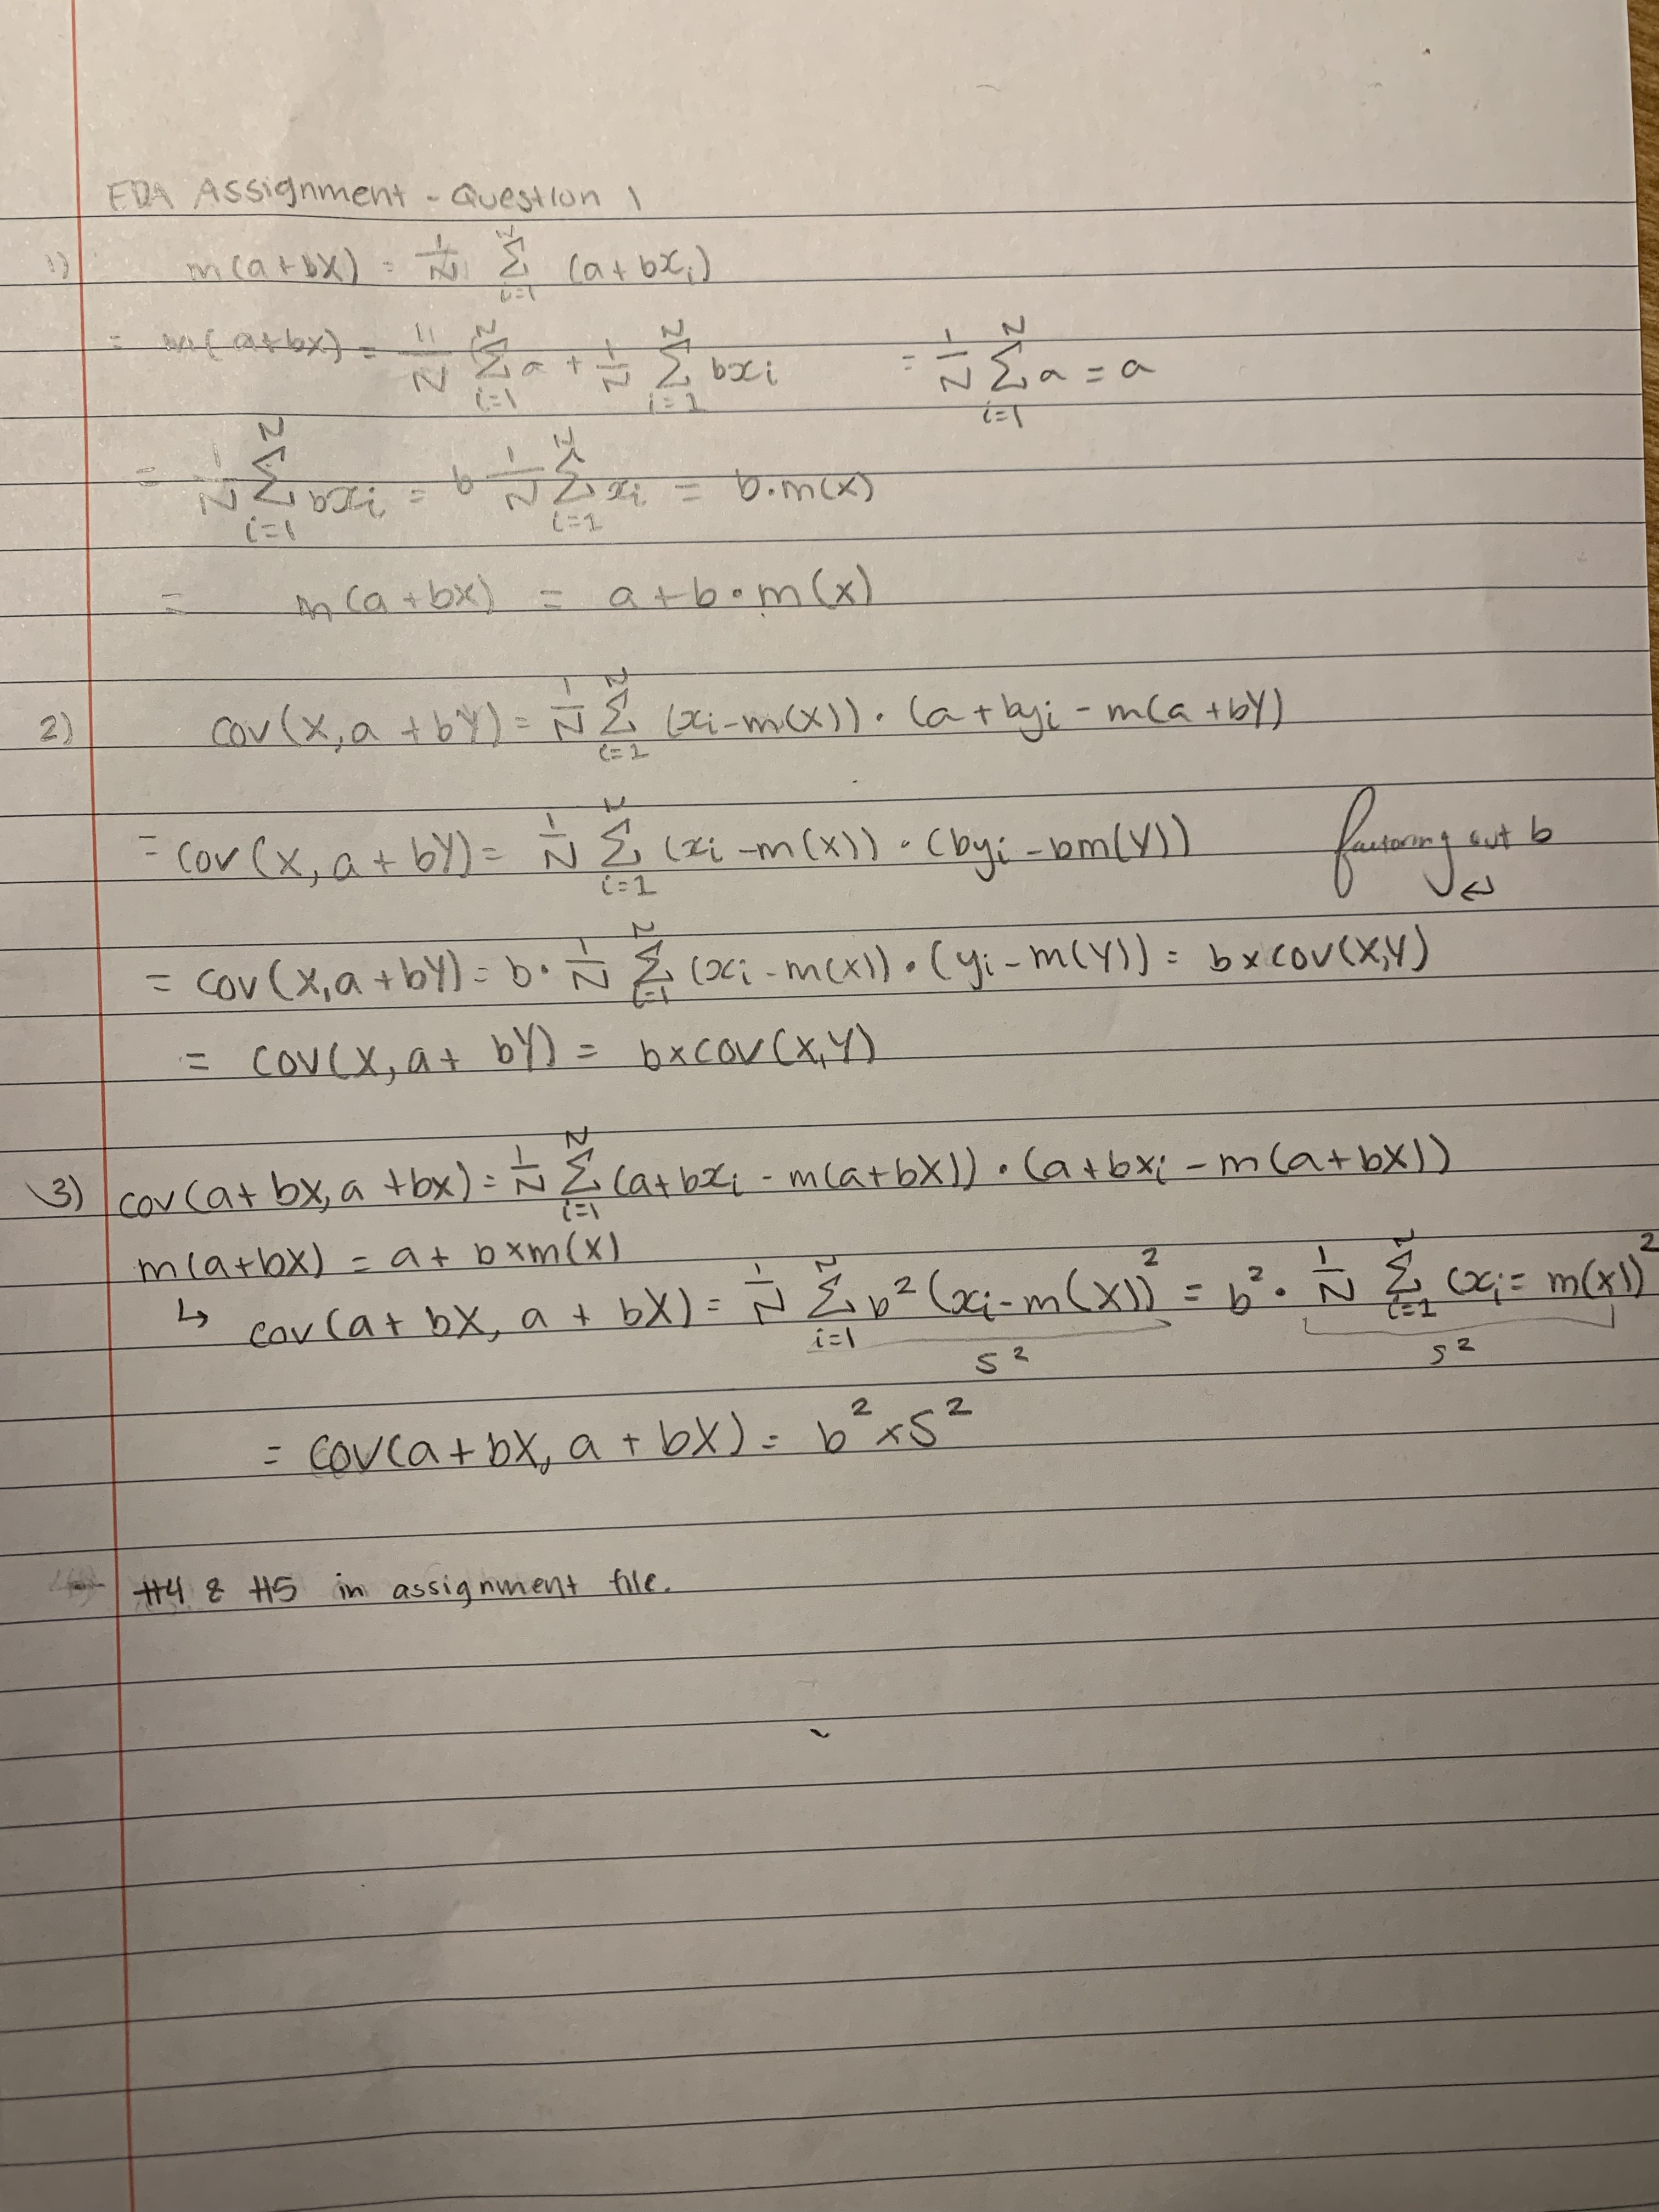 EDA Assignment - Question 1
1) m(a+bX) = 1/N Σ_{i=1}^{N} (a+bx_i)
= m(a+bx) = 1/N Σ_{i=1}^{N} a + 1/N Σ_{i=1}^{N} bx_i = 1/N Σ_{i=1}^{N} a = a
= 1/N Σ_{i=1}^{N} bx_i = b 1/N Σ_{i=1}^{N} x_i = b·m(x)
= m(a+bx) = a+b·m(x)
2) cov(X, a+bY) = 1/N Σ_{i=1}^{N} (x_i-m(X))·(a+by_i-m(a+bY)
= cov(X, a+bY) = 1/N Σ_{i=1}^{N} (x_i-m(X))·(by_i-bm(Y)) factoring out b
= cov(X, a+bY) = b·1/N Σ_{i=1}^{N} (x_i-m(X))·(y_i-m(Y)) = b×cov(X,Y)
= cov(X, a+bY) = b×cov(X,Y)
3) cov(a+bx, a+bx) = 1/N Σ_{i=1}^{N} (a+bx_i-m(a+bX))·(a+bx_i-m(a+bX))
m(a+bX) = a+b×m(x)
↳ cov(a+bX, a+bX) = 1/N Σ_{i=1}^{N} b²(x_i-m(X))² = b²·1/N Σ_{i=1}^{N} (x_i=m(x))²
s² s²
= cov(a+bX, a+bX) = b²×S²
#4 & #5 in assignment file.